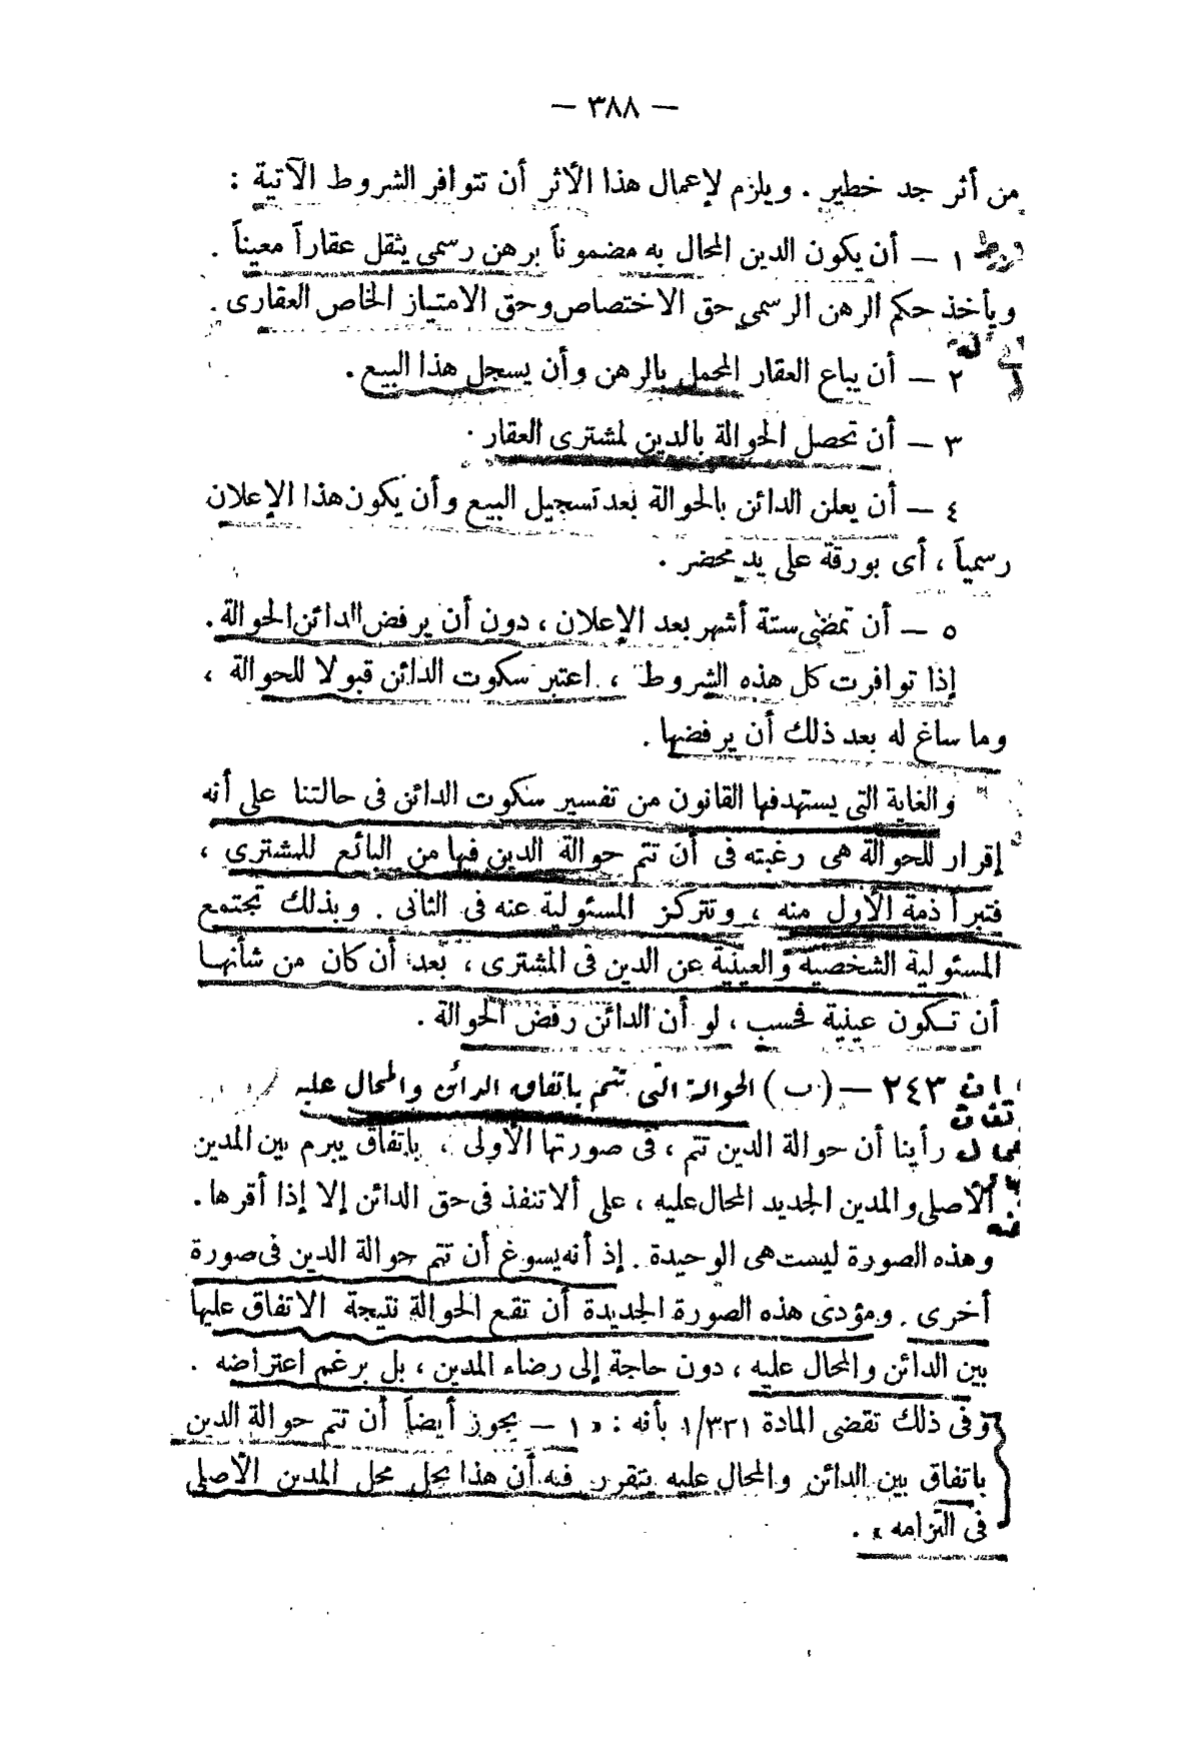 — ٣٨٨ —
من أثر جد خطير . ويلزم لإعمال هذا الأثر أن تتوافر الشروط الآتية :
١ — أن يكون الدين المحال به مضموناً برهن رسمى يثقل عقاراً معيناً .
ويأخذ حكم الرهن الرسمى حق الاختصاص وحق الامتياز الخاص العقارى .
٢ — أن يباع العقار المحمل بالرهن وأن يسجل هذا البيع .
٣ — أن تحصل الحوالة بالدين لمشترى العقار .
٤ — أن يعلن الدائن بالحوالة بعد تسجيل البيع وأن يكون هذا الإعلان
رسمياً ، أى بورقة على يد محضر .
٥ — أن تمضى ستة أشهر بعد الإعلان ، دون أن يرفض الدائن الحوالة .
إذا توافرت كل هذه الشروط ، اعتبر سكوت الدائن قبولا للحوالة ،
وما ساغ له بعد ذلك أن يرفضها .
والغاية التى يستهدفها القانون من تفسير سكوت الدائن فى حالتنا على أنه
إقرار للحوالة هى رغبته فى أن تتم حوالة الدين فيها من البائع للمشترى ،
فتبرأ ذمة الأول منه ، وتتركز المسئولية عنه فى الثانى . وبذلك تجتمع
المسئولية الشخصية والعينية عن الدين فى المشترى ، بعد أن كان من شأنها
أن تكون عينية فحسب ، لو أن الدائن رفض الحوالة .
٢٤٣ — (ب) الحوالة التى تتم باتفاق الدائن والمحال عليه
رأينا أن حوالة الدين تتم ، فى صورتها الأولى ، باتفاق يبرم بين المدين
الأصلى والمدين الجديد المحال عليه ، على ألا تنفذ فى حق الدائن إلا إذا أقرها .
وهذه الصورة ليست هى الوحيدة . إذ أنه يسوغ أن تتم حوالة الدين فى صورة
أخرى . ومؤدى هذه الصورة الجديدة أن تقع الحوالة نتيجة الاتفاق عليها
بين الدائن والمحال عليه ، دون حاجة إلى رضاء المدين ، بل برغم اعتراضه .
وفى ذلك تقضى المادة ١/٣٢١ بأنه : « ١ — يجوز أيضاً أن تتم حوالة الدين
باتفاق بين الدائن والمحال عليه يتقرر فيه أن هذا يحل محل المدين الأصلى
فى التزامه » .